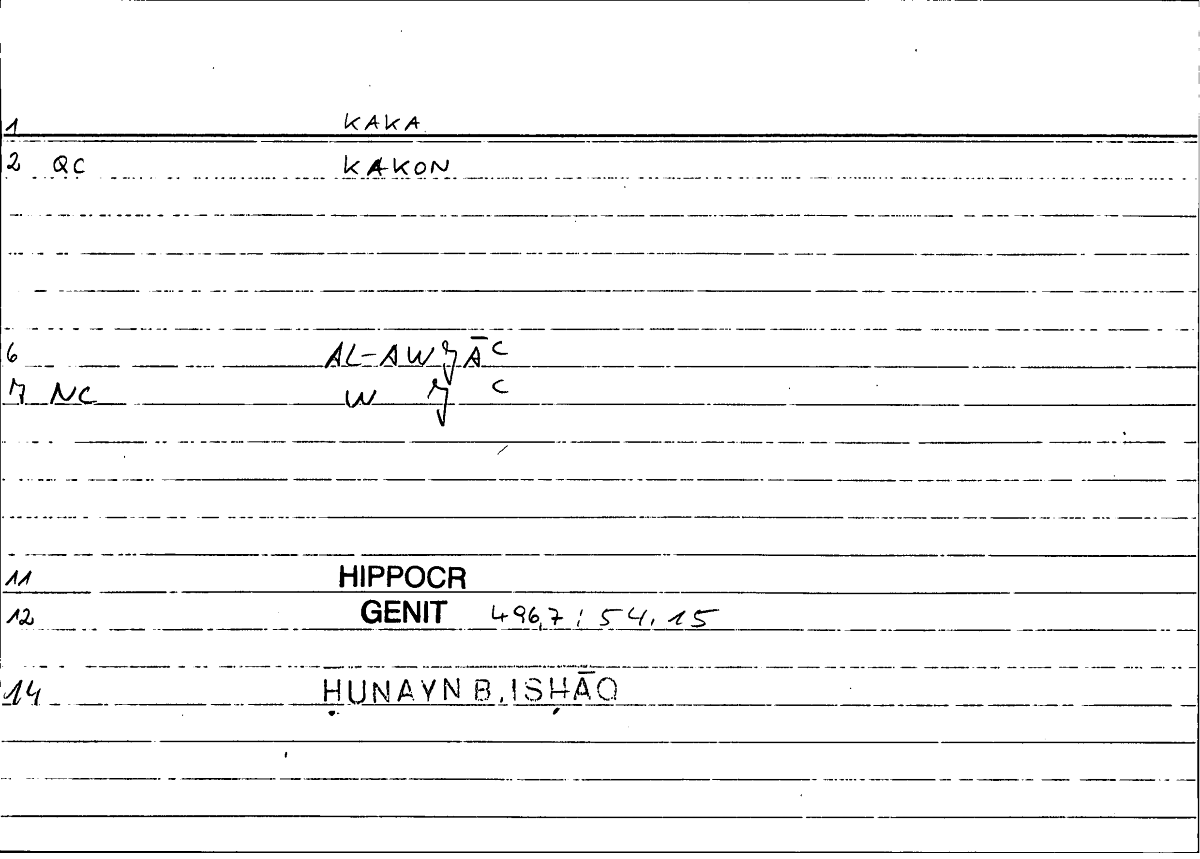 1 KAKA
2 QC KAKON
6 AL-AWJĀʿ
7 NC W J ʿ
11 HIPPOCR
12 GENIT 496,7 ; 54.15
14 ḤUNAYN B. ISḤĀQ